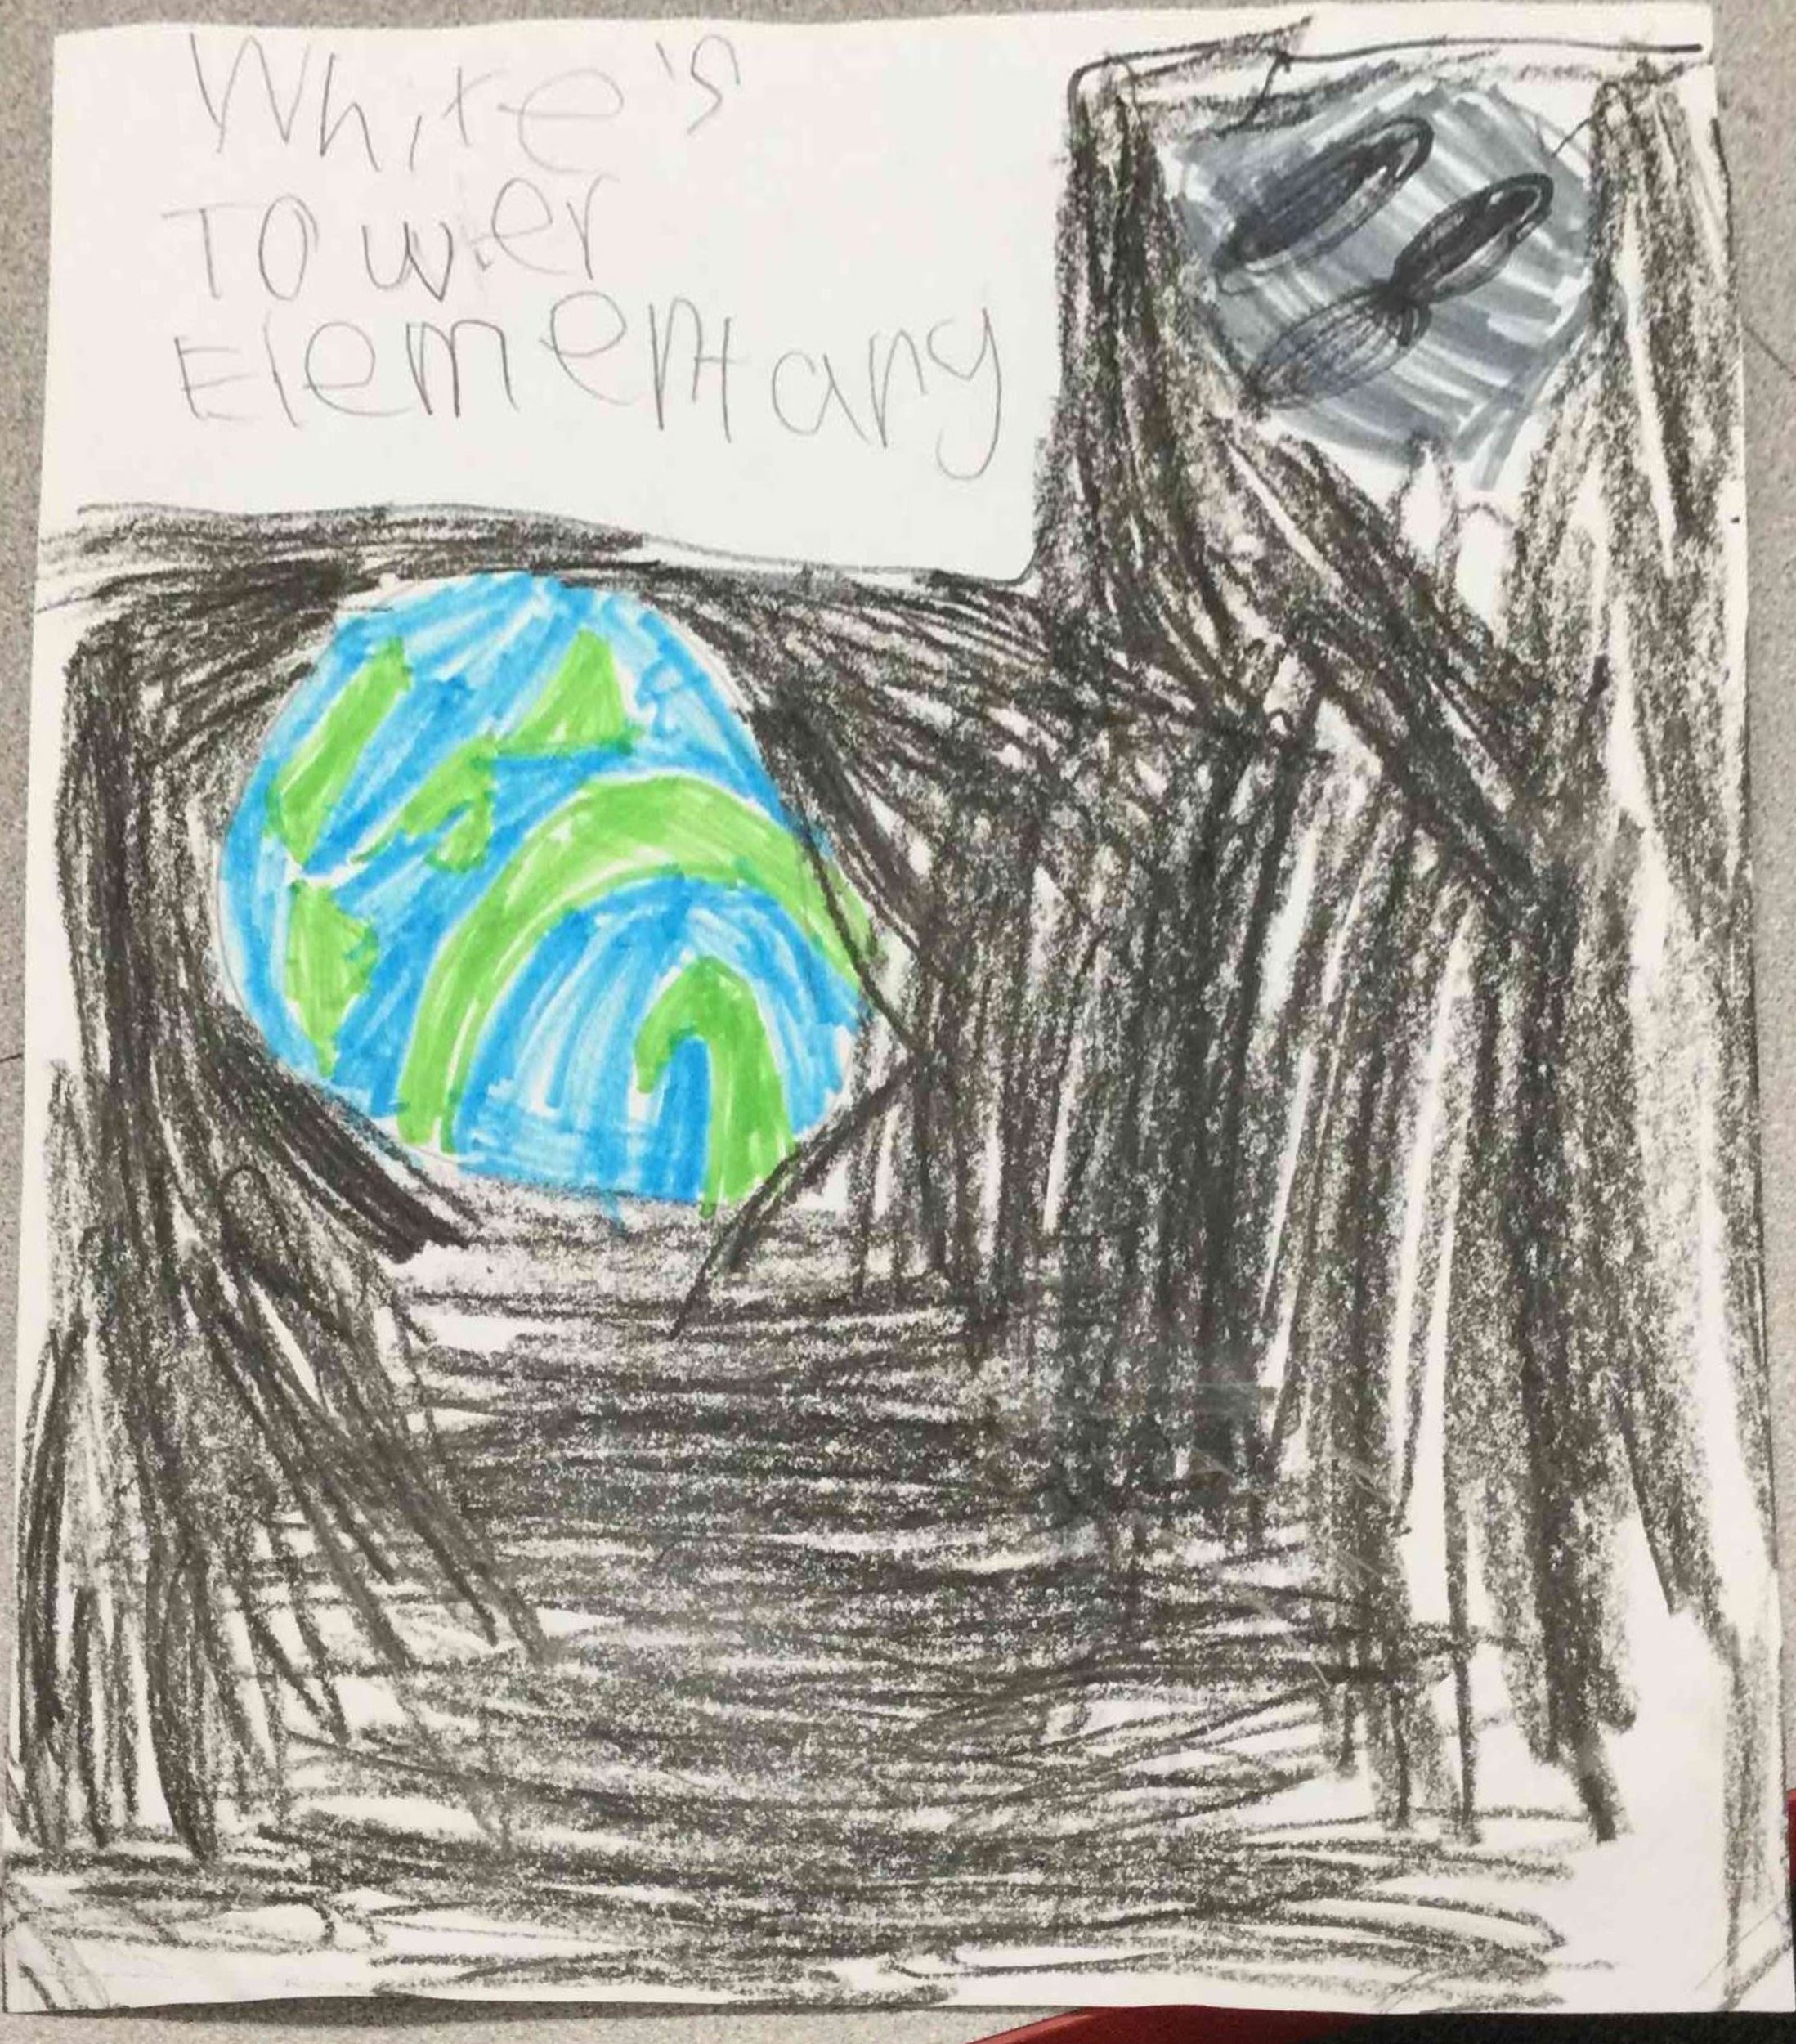 White's
Tower
Elementary